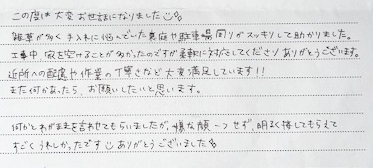 この度は大変お世話になりました
雑草が多く手入れに悩んでいた裏庭や駐車場周りがスッキリして助かりました。
工事中、家を空けることが多かったのですが柔軟に対応してくださりありがとうございます。
近所への配慮や作業の丁寧さなど大変満足しています!!
また何かあったら、お願いしたいと思います。
何かとわがままを言わせてもらいましたが、嫌な顔一つせず、明るく接してもらえて
すごくうれしかったです ありがとうございました